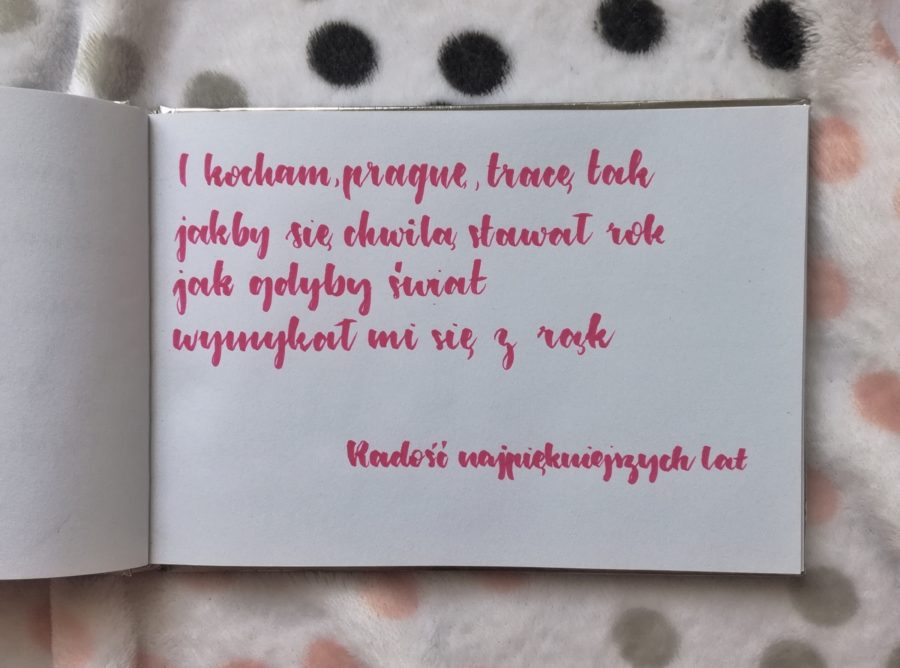 I kocham, pragnę, tracę tak
jakby się chwilą stawał rok
jak gdyby świat
wymykał mi się z rąk
Radość najpiękniejszych lat